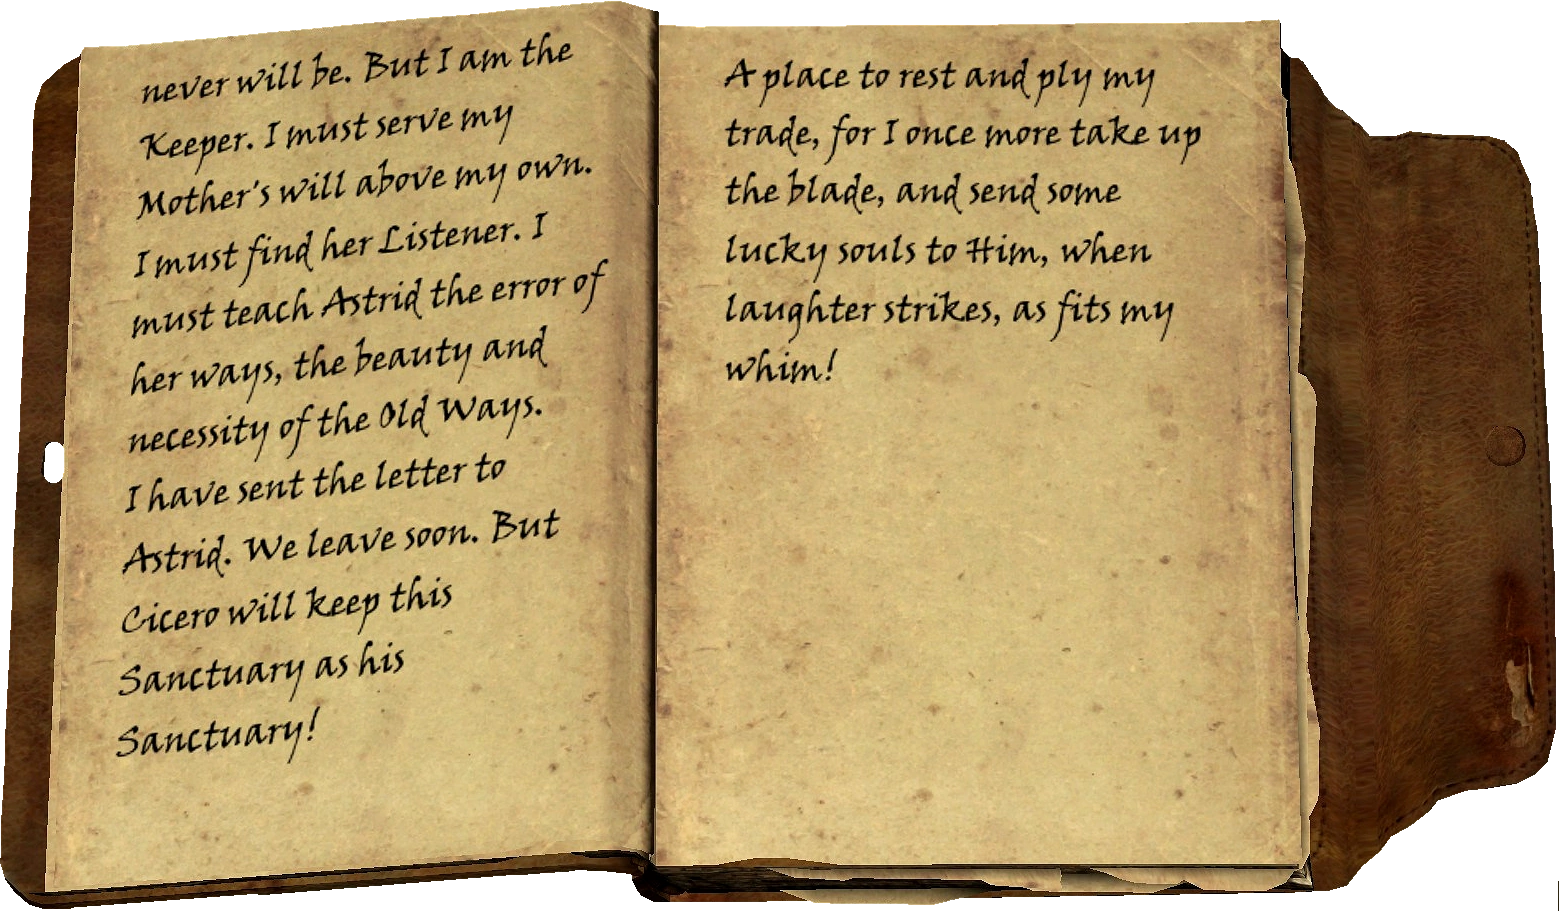 never will be. But I am the
Keeper. I must serve my
Mother's will above my own.
I must find her Listener. I
must teach Astrid the error of
her ways, the beauty and
necessity of the Old Ways.
I have sent the letter to
Astrid. We leave soon. But
Cicero will keep this
Sanctuary as his
Sanctuary!
A place to rest and ply my
trade, for I once more take up
the blade, and send some
lucky souls to Him, when
laughter strikes, as fits my
whim!